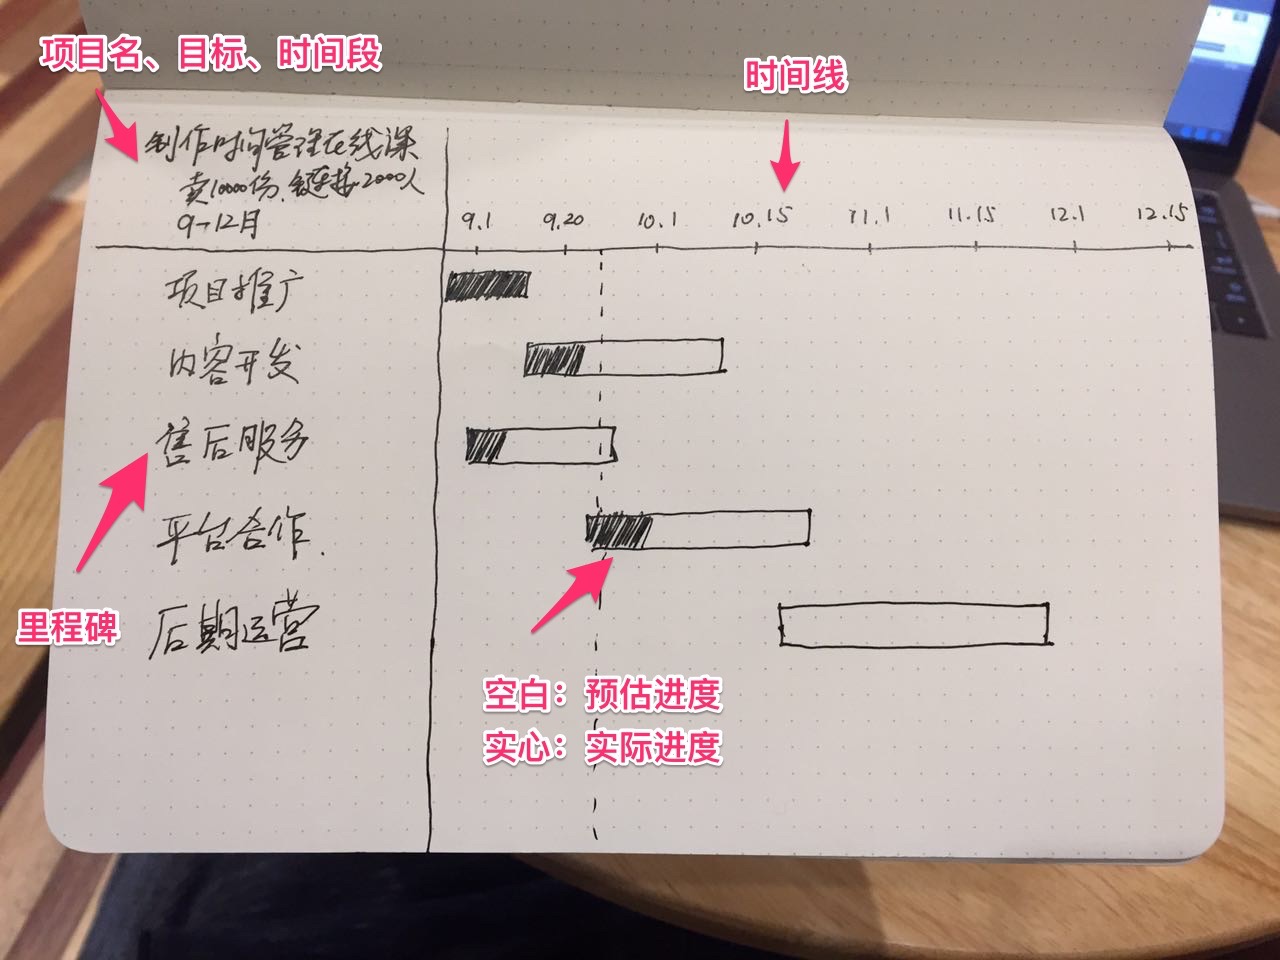 项目名、目标、时间段
时间线
制作时间管理在线课
卖10000份、链接2000人
9→12月
9.1 9.20 10.1 10.15 11.1 11.15 12.1 12.15
项目推广
内容开发
售后服务
平台合作.
里程碑
后期运营
空白：预估进度
实心：实际进度